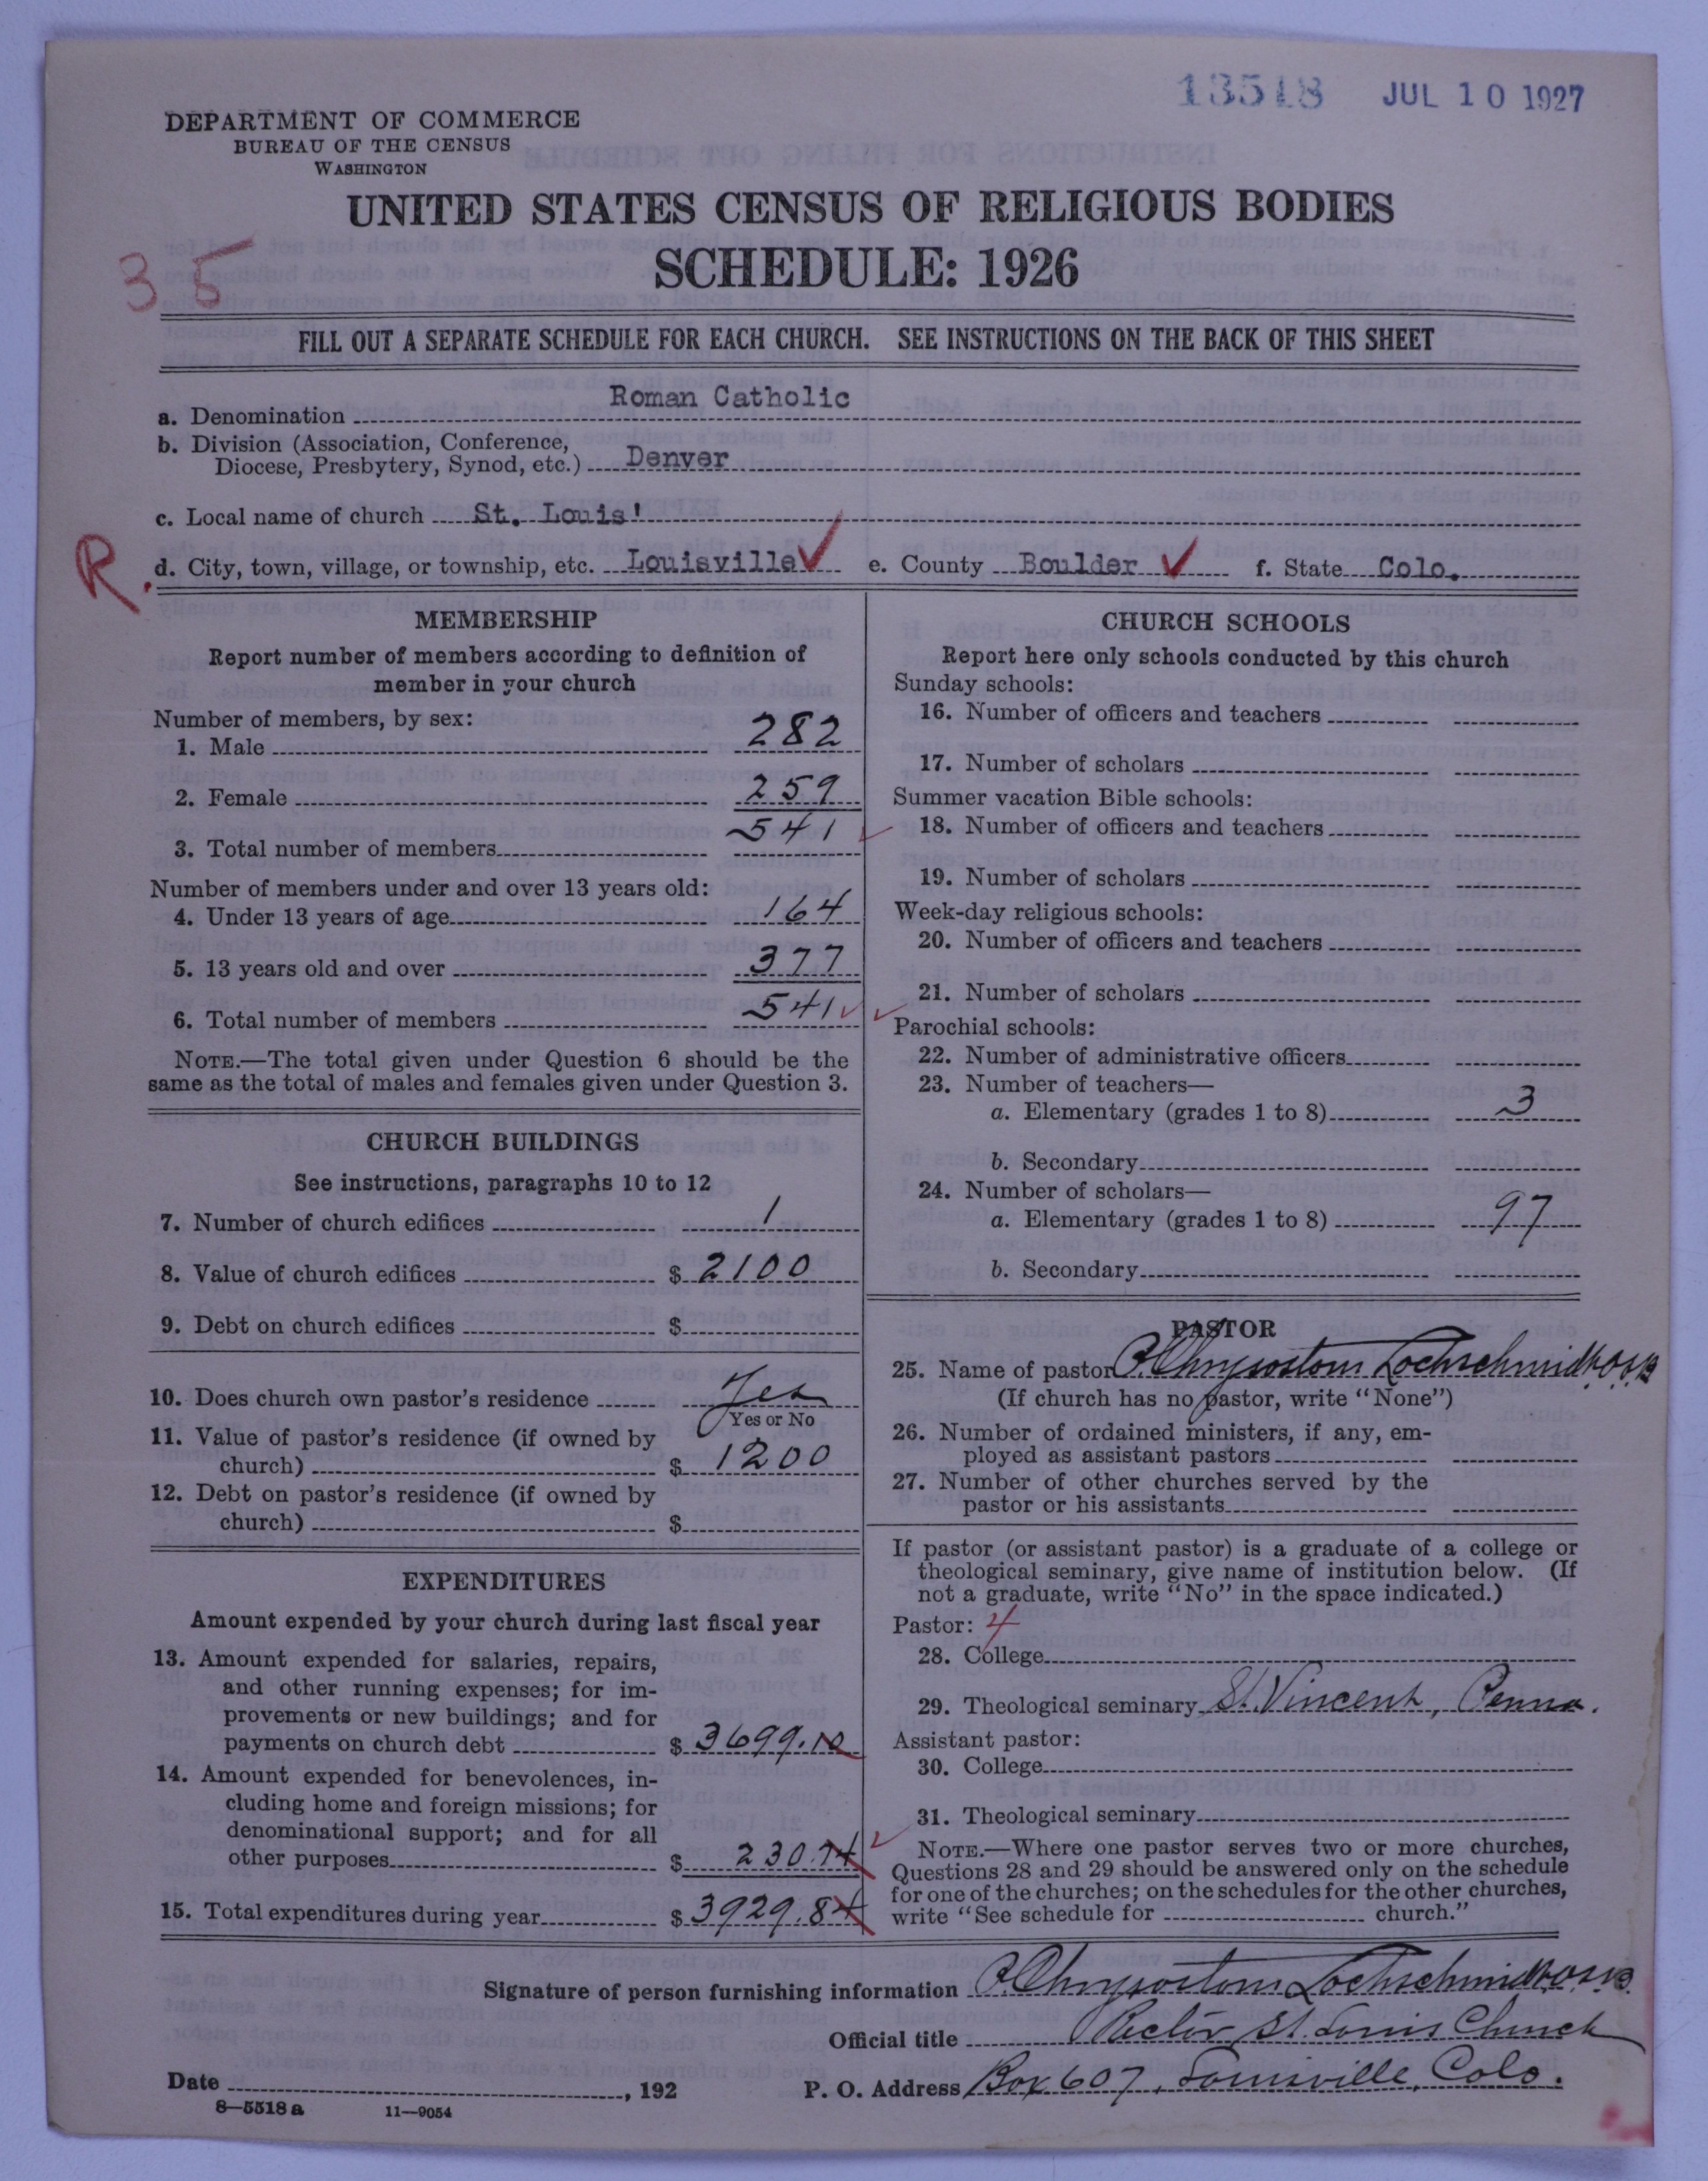 13518 JUL 10 1927
DEPARTMENT OF COMMERCE
BUREAU OF THE CENSUS
WASHINGTON
UNITED STATES CENSUS OF RELIGIOUS BODIES
SCHEDULE: 1926
35
FILL OUT A SEPARATE SCHEDULE FOR EACH CHURCH. SEE INSTRUCTIONS ON THE BACK OF THIS SHEET
a. Denomination Roman Catholic
b. Division (Association, Conference,
Diocese, Presbytery, Synod, etc.) Denver
c. Local name of church St. Louis'
R. d. City, town, village, or township, etc. Louisville e. County Boulder f. State Colo.
MEMBERSHIP
Report number of members according to definition of
member in your church
Number of members, by sex:
1. Male 282
2. Female 259
3. Total number of members 541
Number of members under and over 13 years old:
4. Under 13 years of age 164
5. 13 years old and over 377
6. Total number of members 541
NOTE.—The total given under Question 6 should be the
same as the total of males and females given under Question 3.
CHURCH BUILDINGS
See instructions, paragraphs 10 to 12
7. Number of church edifices 1
8. Value of church edifices $ 2100
9. Debt on church edifices $
10. Does church own pastor's residence Yes
Yes or No
11. Value of pastor's residence (if owned by
church) $ 1200
12. Debt on pastor's residence (if owned by
church) $
EXPENDITURES
Amount expended by your church during last fiscal year
13. Amount expended for salaries, repairs,
and other running expenses; for im-
provements or new buildings; and for
payments on church debt $ 3699.10
14. Amount expended for benevolences, in-
cluding home and foreign missions; for
denominational support; and for all
other purposes $ 230.74
15. Total expenditures during year $ 3929.84
CHURCH SCHOOLS
Report here only schools conducted by this church
Sunday schools:
16. Number of officers and teachers
17. Number of scholars
Summer vacation Bible schools:
18. Number of officers and teachers
19. Number of scholars
Week-day religious schools:
20. Number of officers and teachers
21. Number of scholars
Parochial schools:
22. Number of administrative officers
23. Number of teachers—
a. Elementary (grades 1 to 8) 3
b. Secondary
24. Number of scholars—
a. Elementary (grades 1 to 8) 97
b. Secondary
PASTOR
25. Name of pastor P. Chrysostom Lochschmidt O.S.B
(If church has no pastor, write "None")
26. Number of ordained ministers, if any, em-
ployed as assistant pastors
27. Number of other churches served by the
pastor or his assistants
If pastor (or assistant pastor) is a graduate of a college or
theological seminary, give name of institution below. (If
not a graduate, write "No" in the space indicated.)
Pastor: 4
28. College
29. Theological seminary St. Vincent, Penna.
Assistant pastor:
30. College
31. Theological seminary
NOTE.—Where one pastor serves two or more churches,
Questions 28 and 29 should be answered only on the schedule
for one of the churches; on the schedules for the other churches,
write "See schedule for church."
Signature of person furnishing information P. Chrysostom Lochschmidt O.S.B.
Official title Rector St. Louis Church
Date , 192 P. O. Address Box 607, Louisville, Colo.
8—5518 a 11—9054